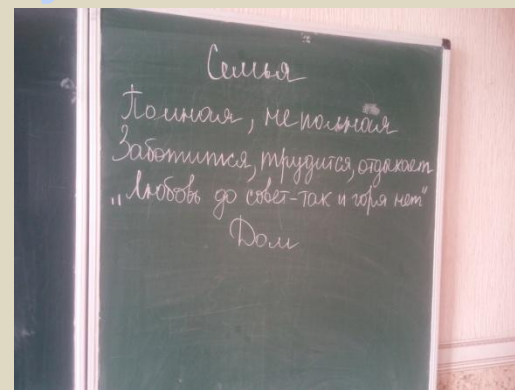 Семья
Полная, неполная
Заботится, трудится, отдыхает
„Любовь до совет-так и горя нет"
Дом